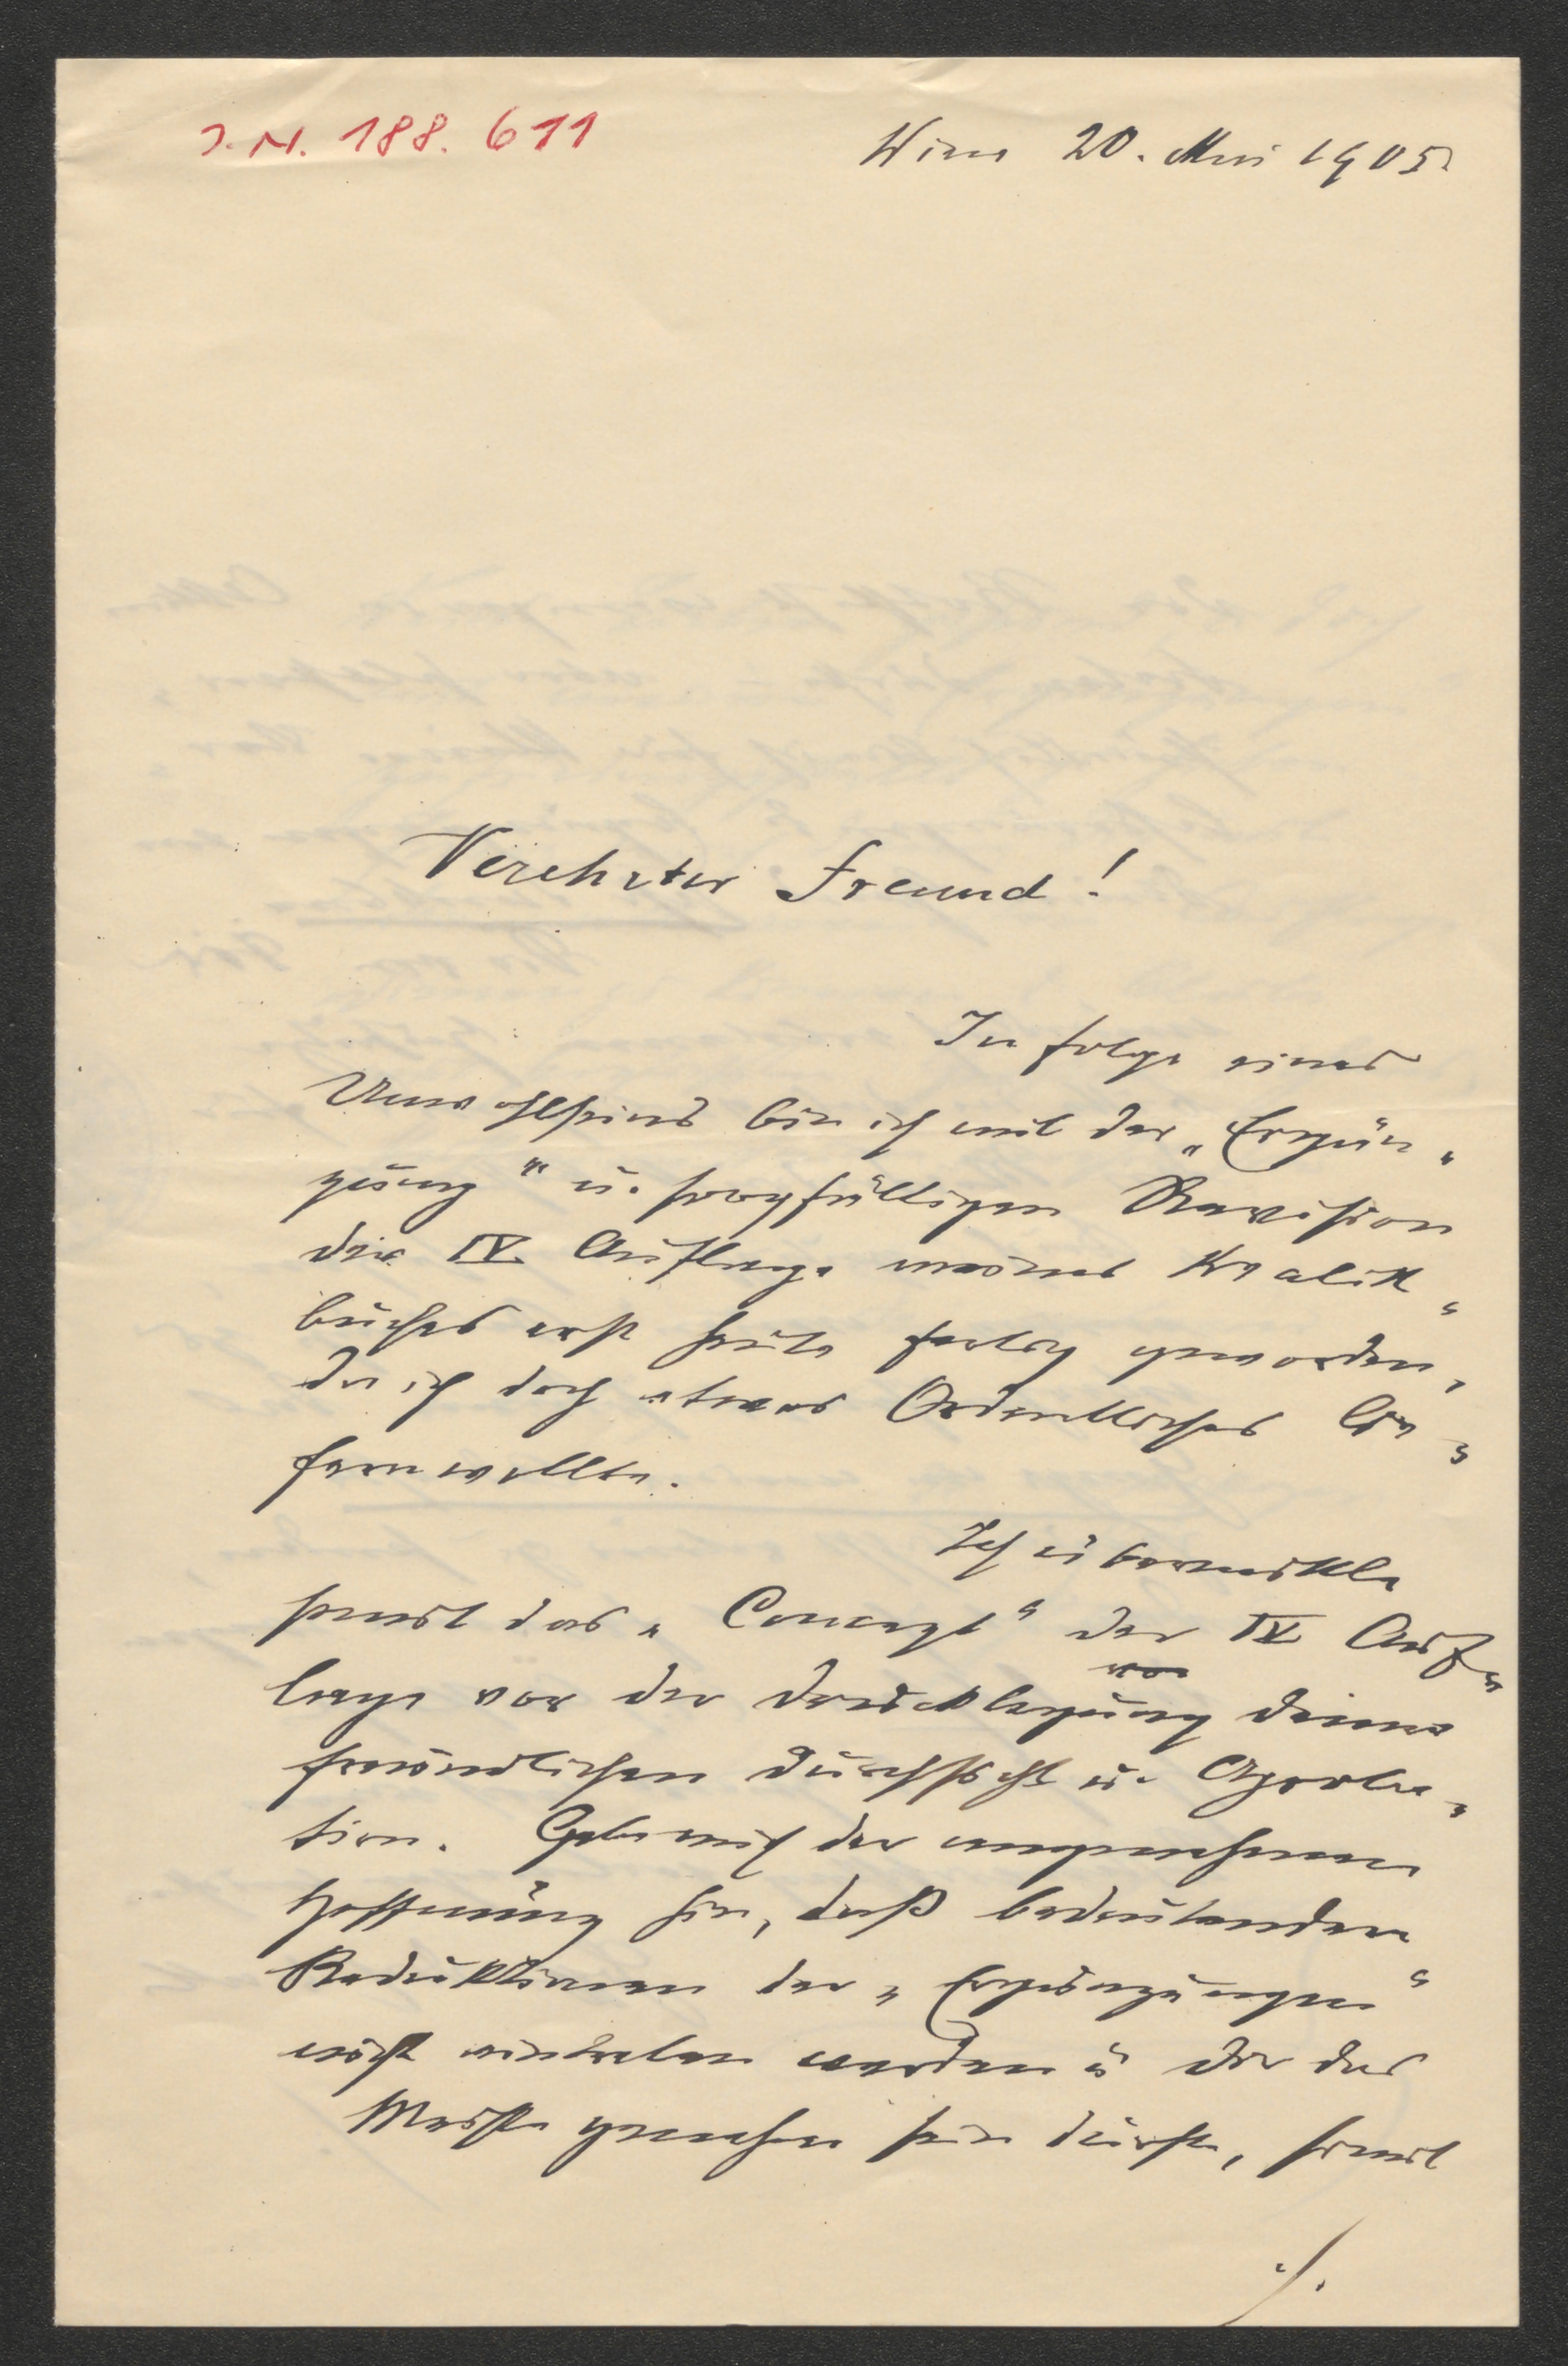 J.N. 188.611
Wien 20. Mai 1905.
Verehrter Freund!
In folge eines
Unwohlseins bin ich mit der „Ergän„
zung" u. sorgfältigen Revision
der IV. Auflage meines
buches erst heute fertig geworden,
da ich doch etwas Ordentliches lie„
fern wollte.
Ich übermittle
somit das „Concept" der IV Auf„
lage vor der Drucklegung deiner
freundlichen Durchsicht u. Approba„
tion. Gebe mich der angenehmen
Hoffnung hin, daß bedeutenden
Reduktionen der „Ergänzungen"
nicht eintreten werden u dir das
genehm sein dürfte, somit
./.